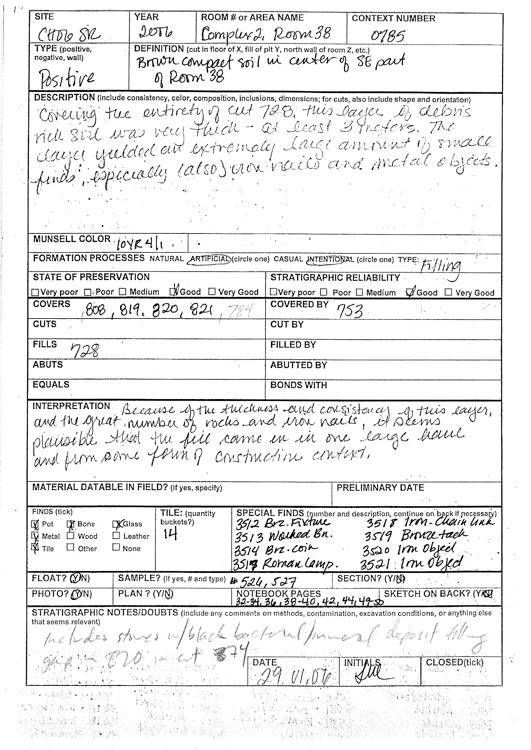 SITE YEAR ROOM # OR AREA NAME CONTEXT NUMBER
CH06 SR 2006 Complex 2, Room 38 0785
TYPE (positive, negative, wall) DEFINITION (cut in floor of X, fill of pit Y, north wall of room Z, etc.)
Positive Brown compact soil in center of SE part
of Room 38
DESCRIPTION (include consistency, color, composition, inclusions, dimensions; for cuts, also include shape and orientation)
Covering the entirety of cut 728, this layer of debris
rich soil was very thick - at least 3 meters. The
layer yielded an extremely large amount of small
finds, especially (also) iron nails and metal objects.
MUNSELL COLOR 10YR 4/1
FORMATION PROCESSES NATURAL ARTIFICIAL (circle one) CASUAL INTENTIONAL (circle one) TYPE: Filling
STATE OF PRESERVATION STRATIGRAPHIC RELIABILITY
Very poor Poor Medium Good Very Good Very poor Poor Medium Good Very Good
COVERS 808, 819, 820, 821, 784 COVERED BY 753
CUTS CUT BY
FILLS 728 FILLED BY
ABUTS ABUTTED BY
EQUALS BONDS WITH
INTERPRETATION Because of the thickness and consistency of this layer,
and the great number of rocks and iron nails, it seems
plausible that the fill came in in one large
and from some form of construction context.
MATERIAL DATABLE IN FIELD? (if yes, specify) PRELIMINARY DATE
FINDS (tick) TILE: (quantity SPECIAL FINDS (number and description, continue on back if necessary)
Pot Bone Glass buckets?) 3512 Brz. Fixture 3518 Iron Chain link
Metal Wood Leather 14 3513 Worked Bn. 3519 Bronze tack
Tile Other None 3514 Brz. coin 3520 Iron Object
3517 Roman Lamp. 3521 Iron Object
FLOAT? (Y/N) SAMPLE? (if yes, # and type) # 526, 527 SECTION? (Y/N)
PHOTO? (Y/N) PLAN? (Y/N) NOTEBOOK PAGES SKETCH ON BACK? (Y/N)
32-34, 36, 38-40, 42, 44, 49-50
STRATIGRAPHIC NOTES/DOUBTS (include any comments on methods, contamination, excavation conditions, or anything else
that seems relevant)
Includes stones w/ black bacterial/mineral deposit filling
gap in 820 in cut 874
DATE INITIALS CLOSED(tick)
29.VI.06